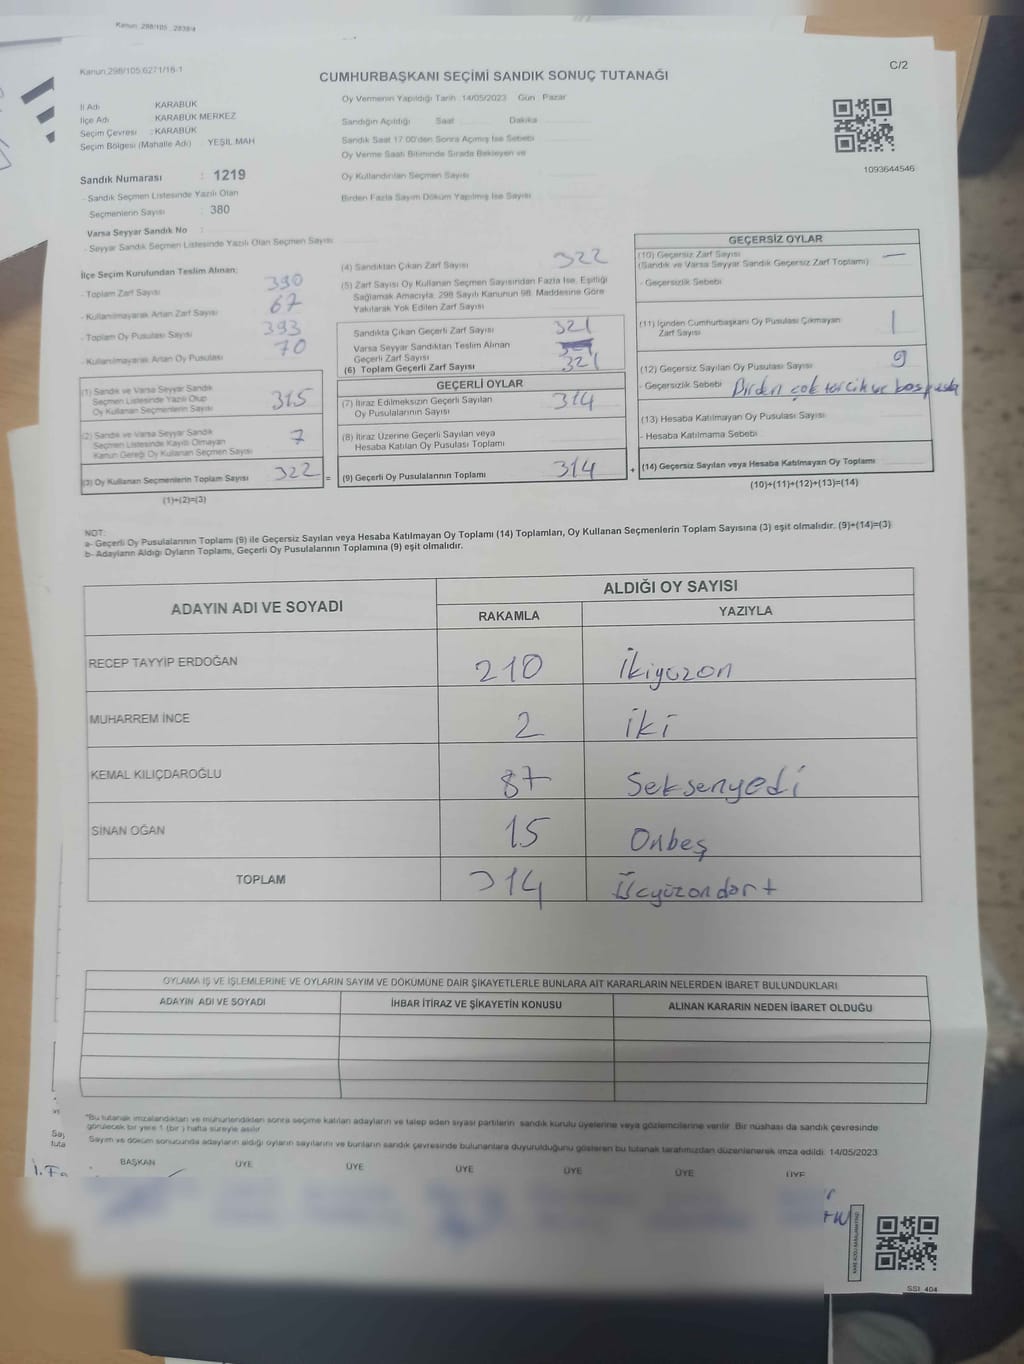 Kanun 298/105 2839/4
Kanun 298/105 6271/16-1
C/2
CUMHURBAŞKANI SEÇİMİ SANDIK SONUÇ TUTANAĞI
İl Adı KARABÜK
İlçe Adı KARABÜK MERKEZ
Seçim Çevresi : KARABÜK
Seçim Bölgesi (Mahalle Adı) YEŞİL MAH
Sandık Numarası : 1219
- Sandık Seçim Listesinde Yazılı Olan
Seçmenlerin Sayısı : 380
Varsa Seyyar Sandık No :
- Seyyar Sandık Seçim Listesinde Yazılı Olan Seçmen Sayısı
Oy Vermenin Yapıldığı Tarih :14/05/2023 Gün : Pazar
Sandığın Açıldığı Saat Dakika
Sandık Saat 17.00'den Sonra Açılmış İse Sebebi
Oy Verme Saati Bitiminde Sırada Bekleyen ve
Oy Kullandırılan Seçmen Sayısı
Birden Fazla Sayım Döküm Yapılmış İse Sayısı
1093644546
İlçe Seçim Kurulundan Teslim Alınan;
- Toplam Zarf Sayısı 390
- Kullanılmayarak Artan Zarf Sayısı 67
- Toplam Oy Pusulası Sayısı 393
- Kullanılmayarak Artan Oy Pusulası 70
(1) Sandık ve Varsa Seyyar Sandık
Seçmen Listesinde Yazılı Olup
Oy Kullanan Seçmenlerin Sayısı 315
(2) Sandık ve Varsa Seyyar Sandık
Seçmen Listesinde Kayıtlı Olmayan
Kanun Gereği Oy Kullanan Seçmen Sayısı 7
(3) Oy Kullanan Seçmenlerin Toplam Sayısı 322 =
(1)+(2)=(3)
(4) Sandıktan Çıkan Zarf Sayısı 322
(5) Zarf Sayısı Oy Kullanan Seçmen Sayısından Fazla İse, Eşitliği
Sağlamak Amacıyla, 298 Sayılı Kanunun 98. Maddesine Göre
Yakılarak Yok Edilen Zarf Sayısı
Sandıkta Çıkan Geçerli Zarf Sayısı 321
Varsa Seyyar Sandıktan Teslim Alınan
Geçerli Zarf Sayısı
(6) Toplam Geçerli Zarf Sayısı 321
GEÇERLİ OYLAR
(7) İtiraz Edilmeksizin Geçerli Sayılan
Oy Pusulalarının Sayısı 314
(8) İtiraz Üzerine Geçerli Sayılan veya
Hesaba Katılan Oy Pusulası Toplamı
(9) Geçerli Oy Pusulalarının Toplamı 314 +
GEÇERSİZ OYLAR
(10) Geçersiz Zarf Sayısı —
(Sandık ve Varsa Seyyar Sandık Geçersiz Zarf Toplamı)
- Geçersizlik Sebebi
(11) İçinden Cumhurbaşkanı Oy Pusulası Çıkmayan
Zarf Sayısı 1
(12) Geçersiz Sayılan Oy Pusulası Sayısı 9
- Geçersizlik Sebebi Birden çok tercih ve boş pusula
(13) Hesaba Katılmayan Oy Pusulası Sayısı
- Hesaba Katılmama Sebebi
(14) Geçersiz Sayılan veya Hesaba Katılmayan Oy Toplamı
(10)+(11)+(12)+(13)=(14)
NOT:
a- Geçerli Oy Pusulalarının Toplamı (9) ile Geçersiz Sayılan veya Hesaba Katılmayan Oy Toplamı (14) Toplamları, Oy Kullanan Seçmenlerin Toplam Sayısına (3) eşit olmalıdır. (9)+(14)=(3)
b- Adayların Aldığı Oyların Toplamı, Geçerli Oy Pusulalarının Toplamına (9) eşit olmalıdır.
ADAYIN ADI VE SOYADI
ALDIĞI OY SAYISI
RAKAMLA YAZIYLA
RECEP TAYYİP ERDOĞAN 210 İkiyüzon
MUHARREM İNCE 2 iki
KEMAL KILIÇDAROĞLU 87 Seksenyedi
SİNAN OĞAN 15 Onbeş
TOPLAM 314 Üçyüzondört
OYLAMA İŞ VE İŞLEMLERİNE VE OYLARIN SAYIM VE DÖKÜMÜNE DAİR ŞİKAYETLERLE BUNLARA AİT KARARLARIN NELERDEN İBARET BULUNDUKLARI
ADAYIN ADI VE SOYADI İHBAR İTİRAZ VE ŞİKAYETİN KONUSU ALINAN KARARIN NEDEN İBARET OLDUĞU
"Bu tutanak imzalandıktan ve mühürlendikten sonra seçime katılan adayların ve talep eden siyasi partilerin sandık kurulu üyelerine veya gözlemcilerine verilir. Bir nüshası da sandık çevresinde
görülecek bir yere 1 (bir ) hafta süreyle asılır.
Sayım ve döküm sonucunda adayların aldığı oyların sayılarını ve bunların sandık çevresinde bulunanlara duyurulduğunu gösteren bu tutanak tarafımızdan düzenlenerek imza edildi. 14/05/2023
BAŞKAN ÜYE ÜYE ÜYE ÜYE ÜYE ÜYE
SSI 404